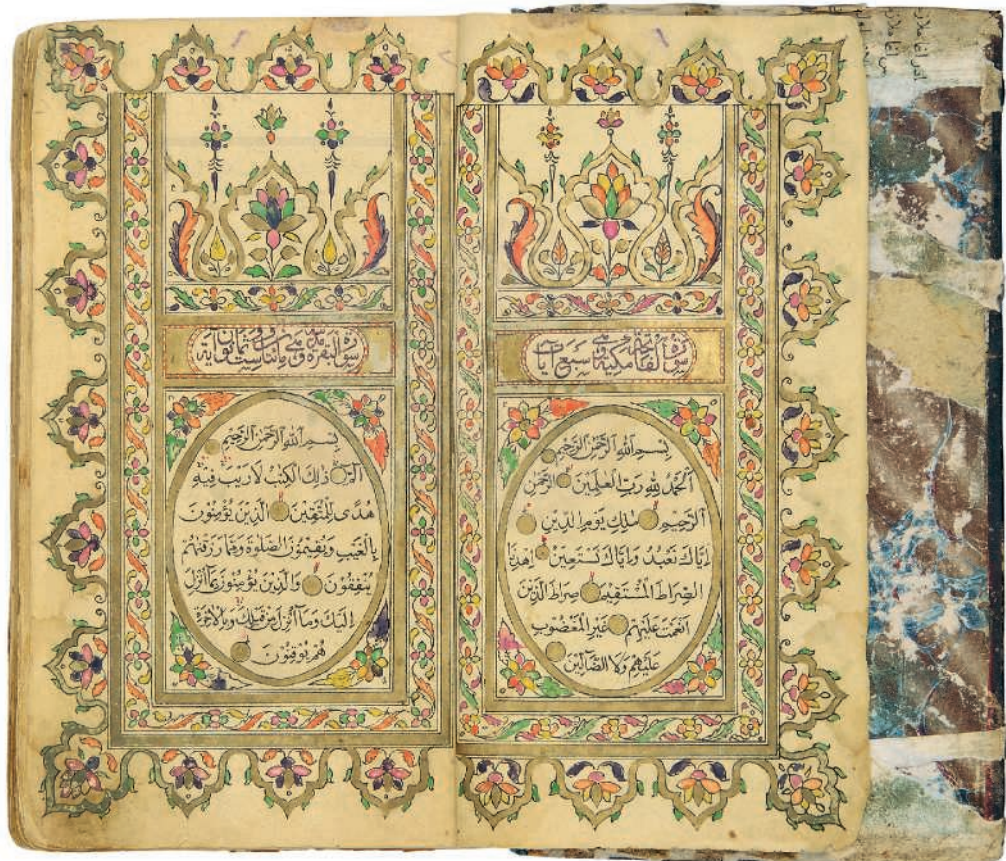 سورة الفاتحة مكية وهي سبع آيات
بِسْمِ اللهِ الرَّحْمٰنِ الرَّحِيمِ
اَلْحَمْدُ لِلّٰهِ رَبِّ الْعٰلَمِينَ الرَّحْمٰنِ
الرَّحِيمِ مٰلِكِ يَوْمِ الدِّينِ
اِيَّاكَ نَعْبُدُ وَاِيَّاكَ نَسْتَعِينُ اِهْدِنَا
الصِّرَاطَ الْمُسْتَقِيمَ صِرَاطَ الَّذِينَ
اَنْعَمْتَ عَلَيْهِمْ غَيْرِ الْمَغْضُوبِ
عَلَيْهِمْ وَلَا الضَّالِّينَ
سورة البقرة مدنية وهي مائتان وست وثمانون آية
بِسْمِ اللهِ الرَّحْمٰنِ الرَّحِيمِ
الٓمٓ ذٰلِكَ الْكِتٰبُ لَا رَيْبَ فِيهِ
هُدًى لِلْمُتَّقِينَ اَلَّذِينَ يُؤْمِنُونَ
بِالْغَيْبِ وَيُقِيمُونَ الصَّلٰوةَ وَمِمَّا رَزَقْنٰهُمْ
يُنْفِقُونَ وَالَّذِينَ يُؤْمِنُونَ بِمَا اُنْزِلَ
اِلَيْكَ وَمَا اُنْزِلَ مِنْ قَبْلِكَ وَبِالْاٰخِرَةِ
هُمْ يُوقِنُونَ